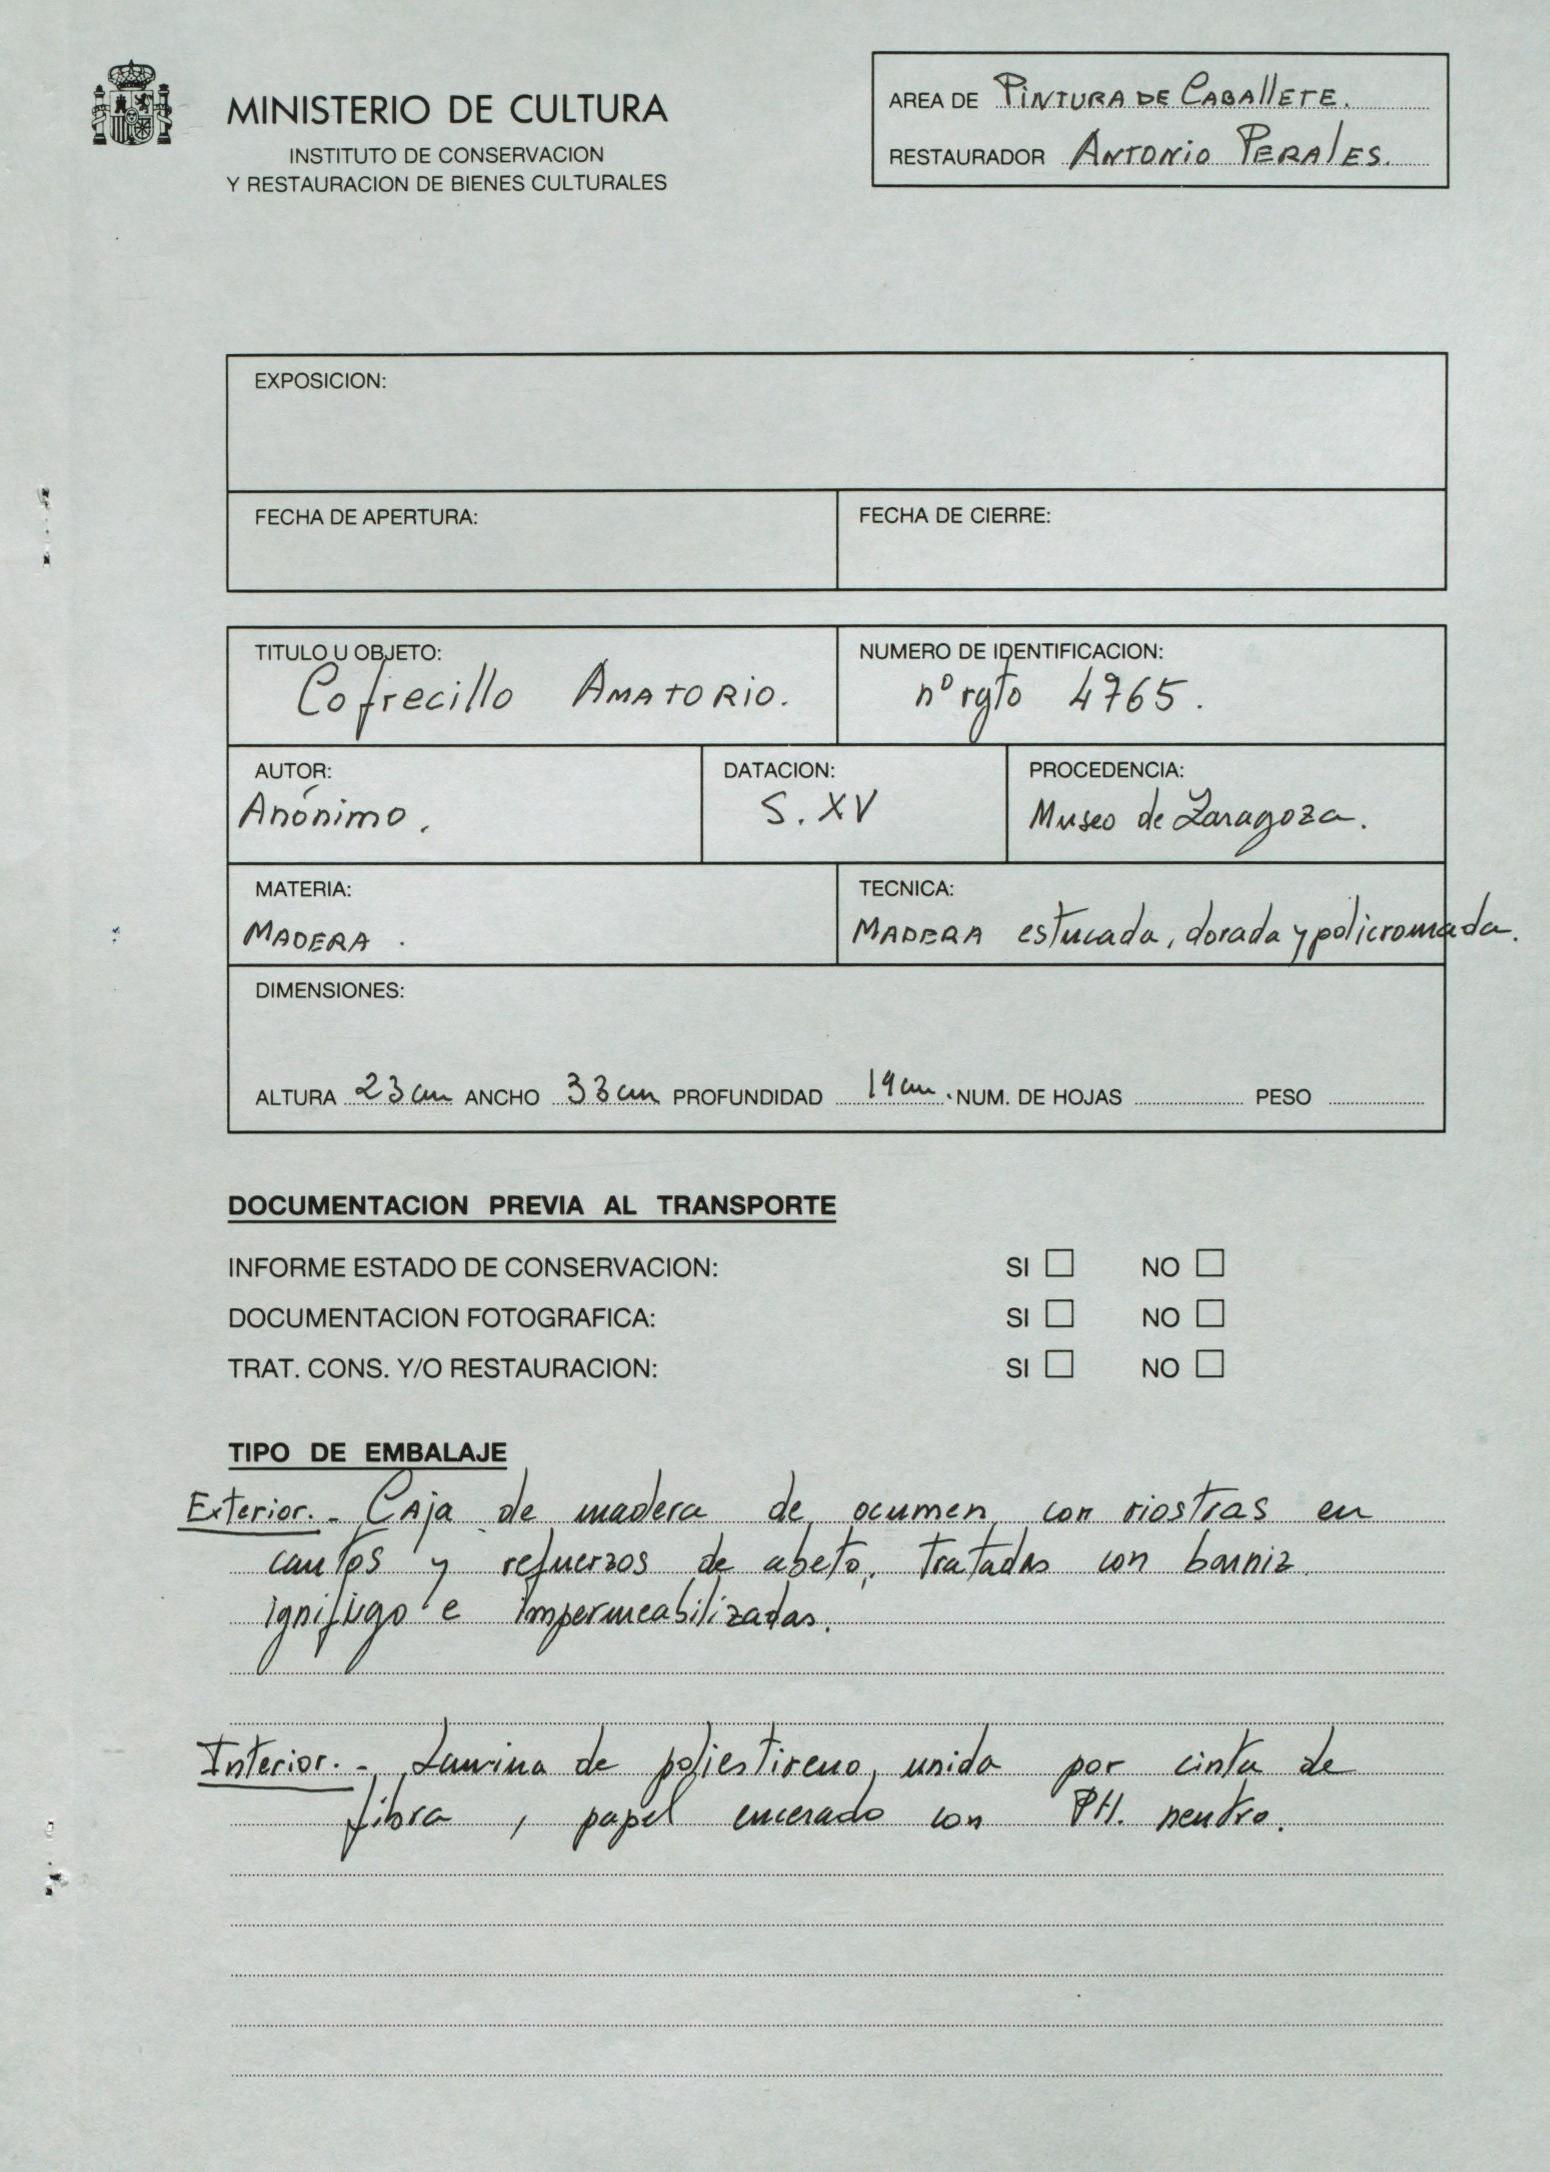 MINISTERIO DE CULTURA
INSTITUTO DE CONSERVACION
Y RESTAURACION DE BIENES CULTURALES
AREA DE PINTURA DE CABALLETE.
RESTAURADOR ANTONIO PERALES.
EXPOSICION:
FECHA DE APERTURA: FECHA DE CIERRE:
TITULO U OBJETO: NUMERO DE IDENTIFICACION:
Cofrecillo AMATORIO. nº rgto 4765.
AUTOR: DATACION: PROCEDENCIA:
Anónimo. S. XV Museo de Zaragoza.
MATERIA: TECNICA:
MADERA. MADERA estucada, dorada y policromada.
DIMENSIONES:
ALTURA 23 cm ANCHO 33 cm PROFUNDIDAD 19 cm. NUM. DE HOJAS PESO
DOCUMENTACION PREVIA AL TRANSPORTE
INFORME ESTADO DE CONSERVACION: SI NO
DOCUMENTACION FOTOGRAFICA: SI NO
TRAT. CONS. Y/O RESTAURACION: SI NO
TIPO DE EMBALAJE
Exterior.- Caja de madera de ocumen con riostras en
cantos y refuerzos de abeto, tratadas con barniz
ignifugo e impermeabilizadas.
Interior.- Lamina de poliestireno, unida por cinta de
fibra, papel encerado con PH. neutro.